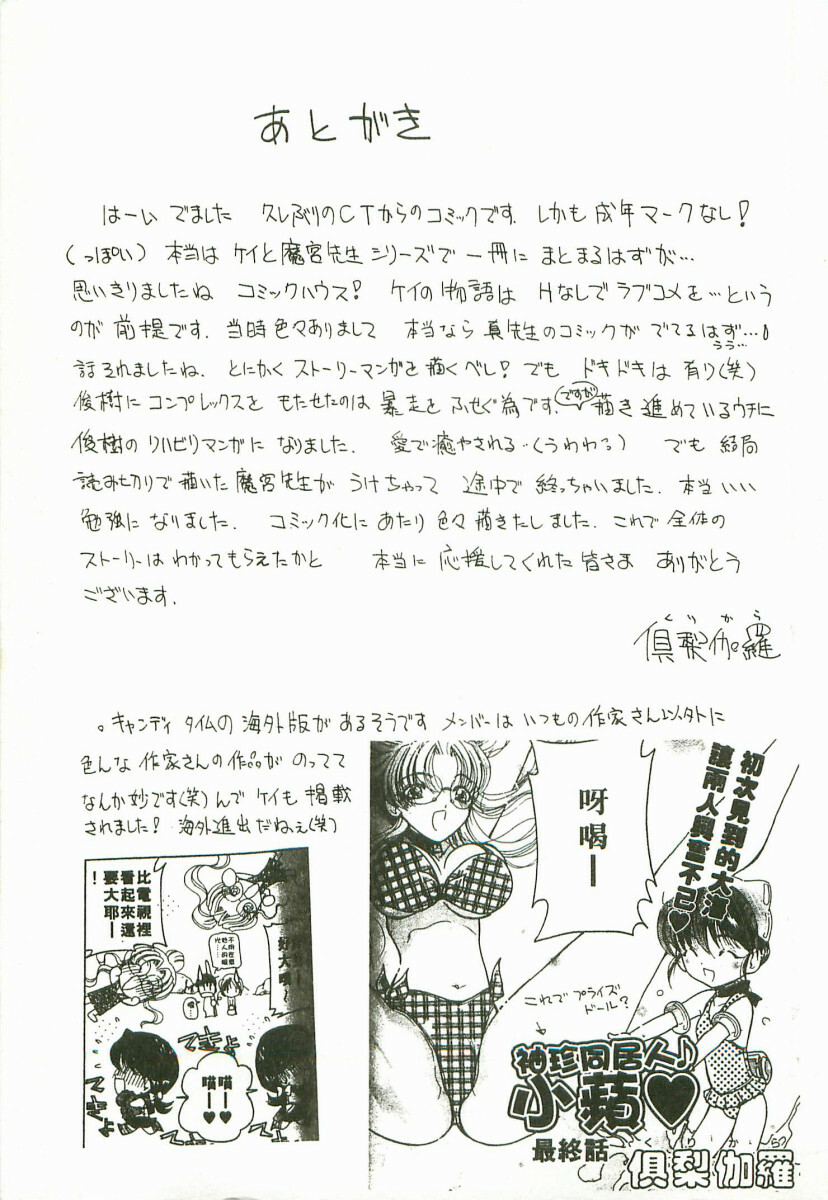 あとがき
はーい でました 久しぶりのCTからのコミックです. しかも 成年マークなし!
(っぽい) 本当は ケイと魔宮先生シリーズで 一冊に まとまるはずが…
思いきりましたね コミックハウス! ケイの物語は Hなしでラブコメを…という
のが 前提です. 当時色々ありまして 本当なら 真先生のコミックが でてるはず…。
うう…
話それましたね. とにかく ストーリーマンガを描くべし! でも ドキドキは 有り(笑)
俊樹に コンプレックスを もたせたのは 暴走を ふせぐ為です. ですが 描き進めているウチに
俊樹の リハビリマンガに なりました. 愛で癒やされる‥(うわわっ) でも 結局
読み切りで描いた魔宮先生が うけちゃって 途中で 終っちゃいました. 本当いい
勉強に なりました. コミック化にあたり 色々描きたしました. これで 全体の
ストーリーは わかってもらえたかと 本当に 応援してくれた 皆さま ありがとう
ございます.
くりから
俱梨伽羅
。キャンディ タイムの 海外版が あるそうです メンバーは いつもの 作家さん以外に
色んな 作家さんの作品が のってて
なんか妙です(笑) んで ケイも 掲載
されました! 海外進出だねぇ(笑)
初次見到的大海
讓兩人興奮不已♥
呀喝ー
これで プライズ
ドール?
袖珍同居人♪
小蘋♥
最終話
くりから
俱梨伽羅
比電視裡
看起來還
要大耶ー
!
好大哦~
不用在意
他人的眼
光…
てきょ
てきょ
てきょ
喵ー♥
喵ー♥